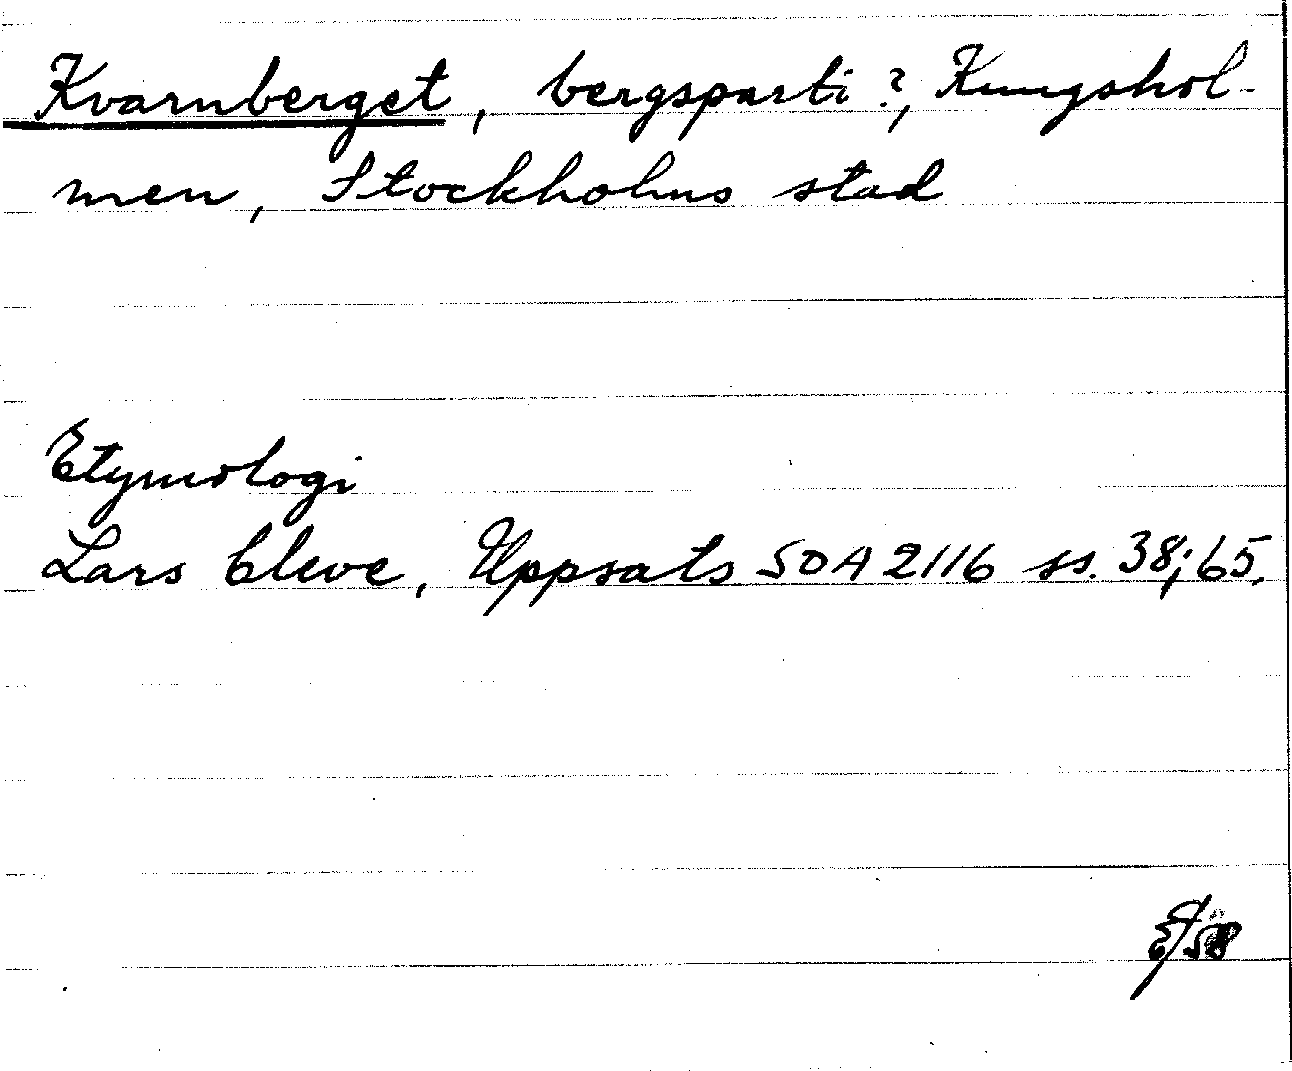 Kvarnberget, bergsparti?, Kungshol-
men, Stockholms stad
Etymologi
Lars Cleve, Uppsats SOA 2116 ss. 38; 65.